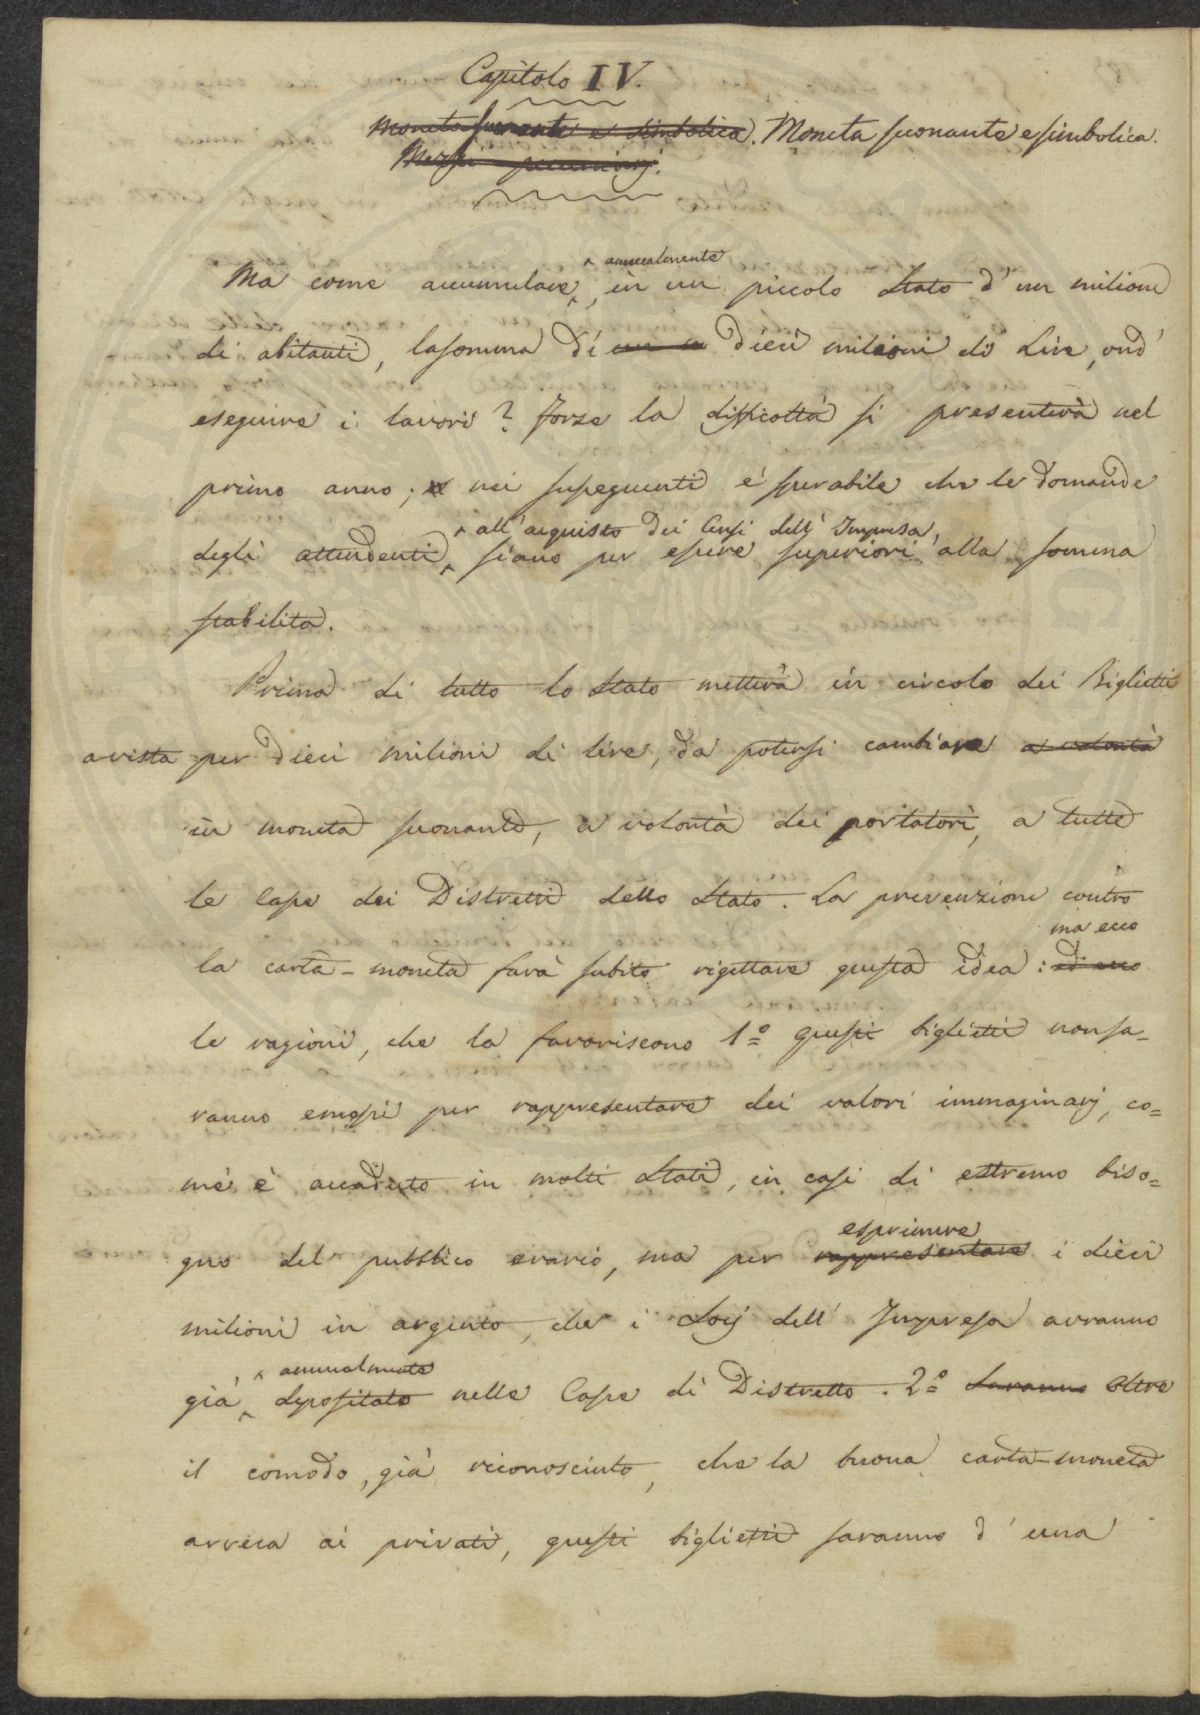 Capitolo IV.
Moneta suonante e simbolica. Moneta suonante e simbolica.
Mezzi pecuniarj.
annualmente
Ma come accumulare, in un piccolo Stato d'un milione
di abitanti, la somma di un m dieci milioni di Lire, ond'
eseguire i lavori? Forse la difficoltà si presenterà nel
primo anno; nei susseguenti è sperabile che le domande
all'acquisto dei Censi dell'Impresa,
degli attendenti, siano per essere superiori alla somma
stabilita.
Prima di tutto lo Stato metterà in circolo dei Biglietti
a vista per dieci milioni di lire, da potersi cambiare a volontà
in moneta suonante, a volontà dei portatori, a tutte
le Casse dei Distretti dello Stato. La prevenzione contro
ma ecco
la carta-moneta farà subito rigettare questa idea: ed ecco
le ragioni, che la favoriscono 1.° questi biglietti non sa-
ranno emessi per rappresentare dei valori immaginarj, co=
me è accaduto in molti Stati, in casi di estremo biso=
esprimere
gno del pubblico erario, ma per rappresentare i dieci
milioni in argento, che i Socj dell'Impresa avranno
annualmente
già depositato nelle Casse di Distretto. 2.° Saranno oltre
il comodo, già riconosciuto, che la buona carta-moneta
arreca ai privati, questi biglietti saranno d'una